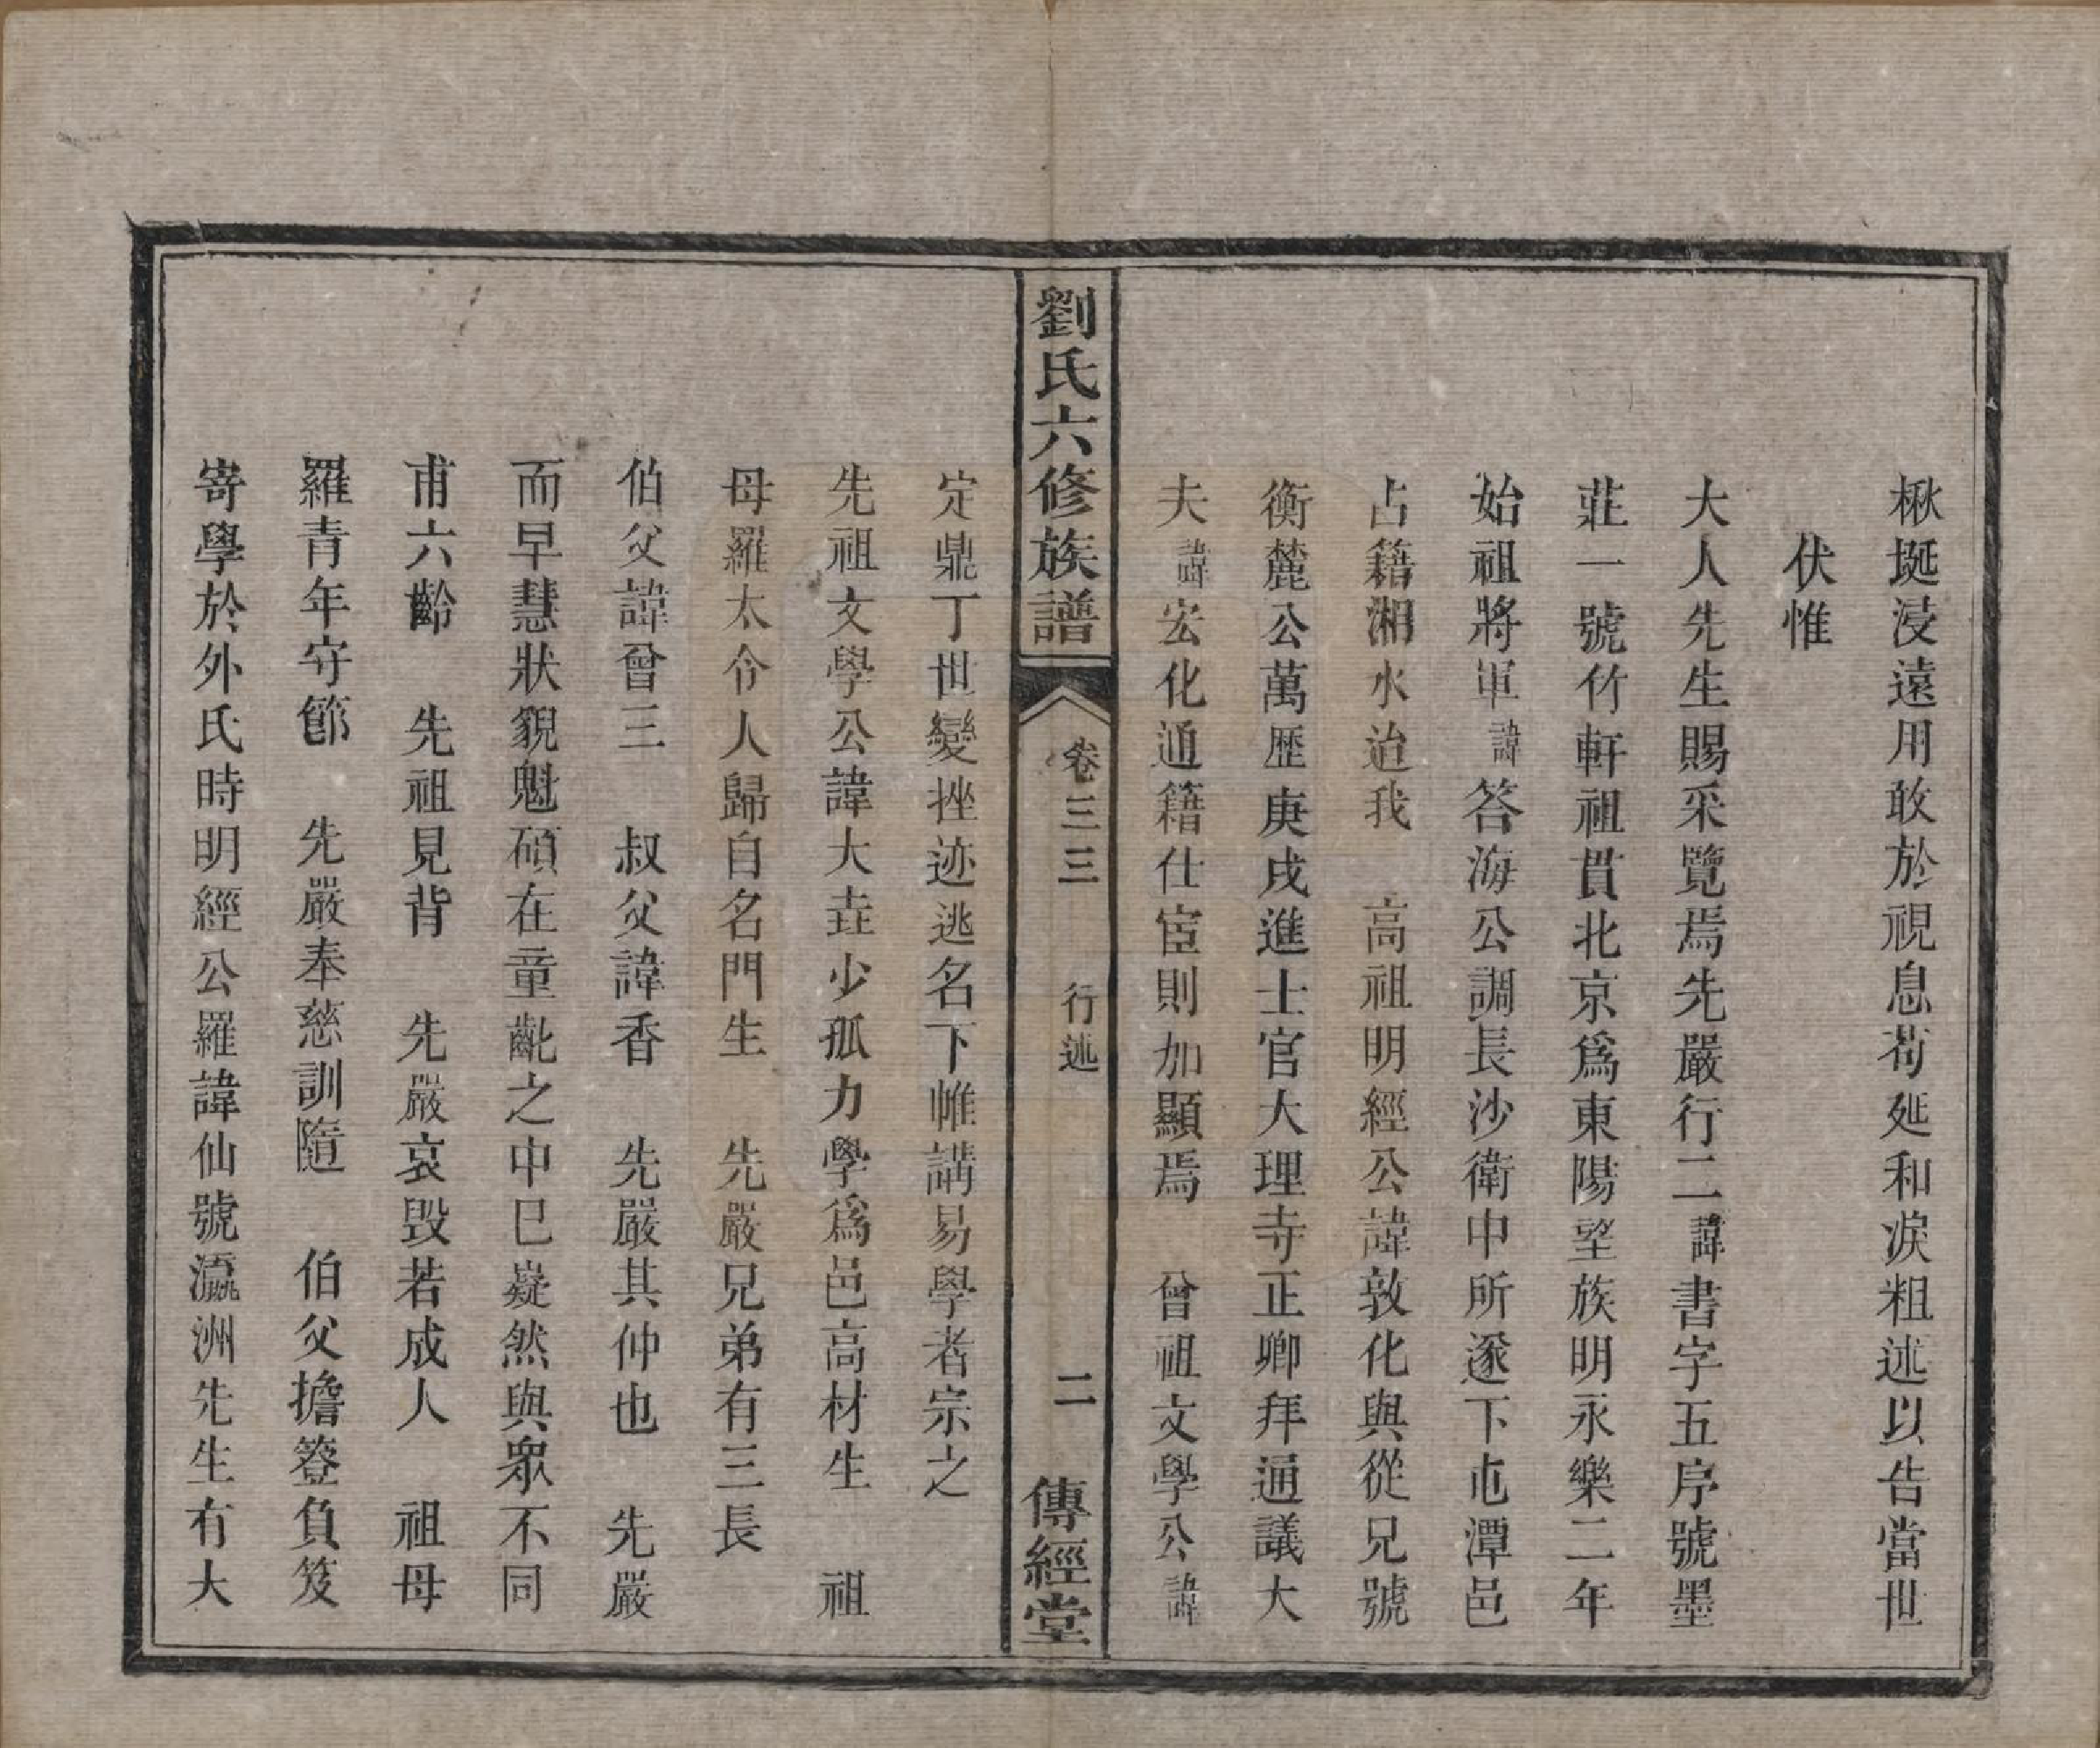 楸埏浸遠用敢於視息茍延和淚粗述以告當世
伏惟
大人先生賜采覽焉先嚴行二諱書字五序號墨
莊一號竹軒祖貫北京爲東陽望族明永樂二年
始祖將軍諱答海公調長沙衛中所遂下屯潭邑
占籍湘水迨我 高祖明經公諱敦化與從兄號
衡麓公萬歷庚戌進士官大理寺正卿拜通議大
夫諱宏化通籍仕宦則加顯焉 曾祖文學公諱
劉氏六修族譜
卷三三 行述 二
傳經堂
定鼎丁世變挫迹逃名下帷講易學者宗之
先祖文學公諱大垚少孤力學爲邑高材生 祖
母羅太令人歸自名門生 先嚴兄弟有三長
伯父諱曾三 叔父諱香 先嚴其仲也 先嚴
而早慧狀貌魁碩在童齔之中巳嶷然與眾不同
甫六齡 先祖見背 先嚴哀毀若成人 祖母
羅青年守節 先嚴奉慈訓隨 伯父擔簦負笈
寄學於外氏時明經公羅諱仙號瀛洲先生有大